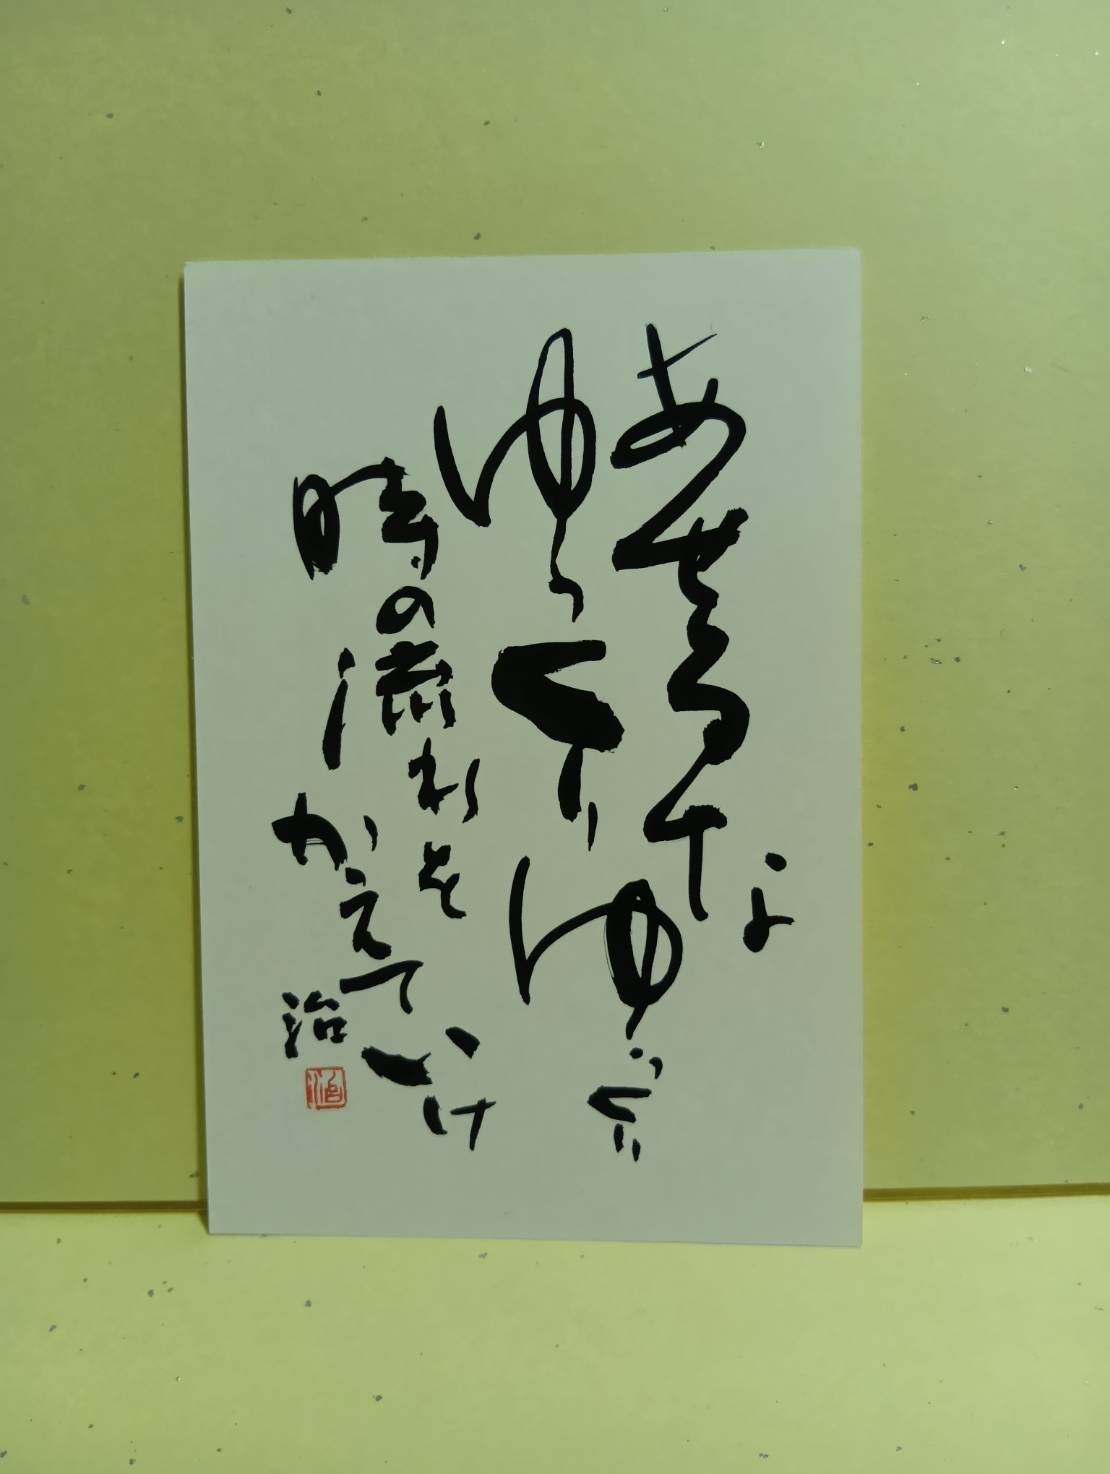 あせるなよ
ゆっくり ゆっくり
時の流れを
かえていけ
治
治